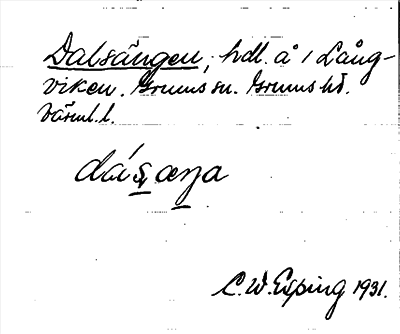 Dalsängen, hdl. å / Lång-
viken. Grums sn. Grums hd.
Värml. l.
dásæŋa
C.W. Esping 1931.